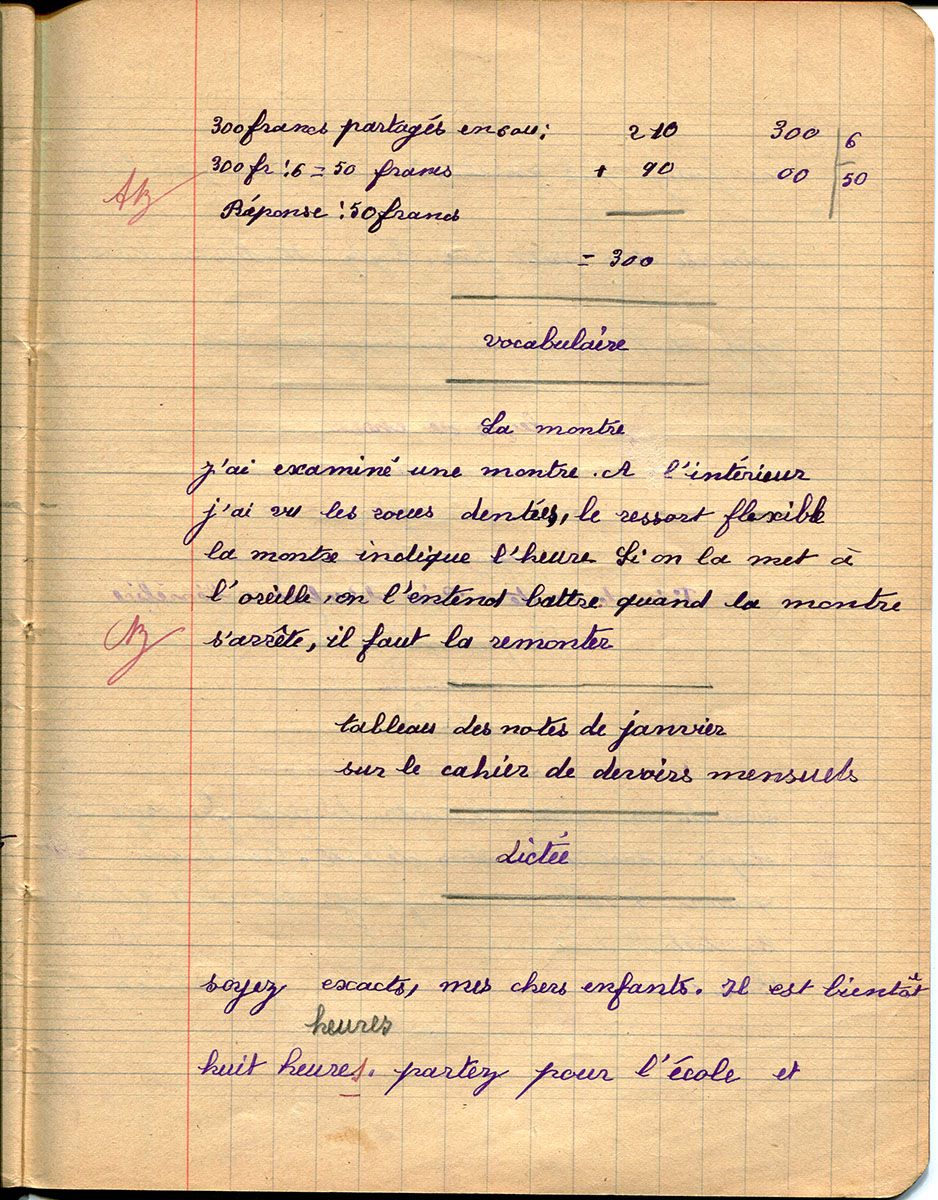 300 francs partagés en 6 ou: 210 300 6
300 fr : 6 = 50 francs + 90 00 50
AB
Réponse : 50 francs
= 300
vocabulaire
La montre
j'ai examiné une montre. A l'intérieur
j'ai vu les roues dentées, le ressort flexible
la montre indique l'heure Si on la met à
l'oreille, on l'entend battre quand la montre
s'arrête, il faut la remonter
B
tableau des notes de janvier
sur le cahier de devoirs mensuels
dictée
soyez exacts, mes chers enfants. Il est bientôt
heures
huit heures. partez pour l'école et